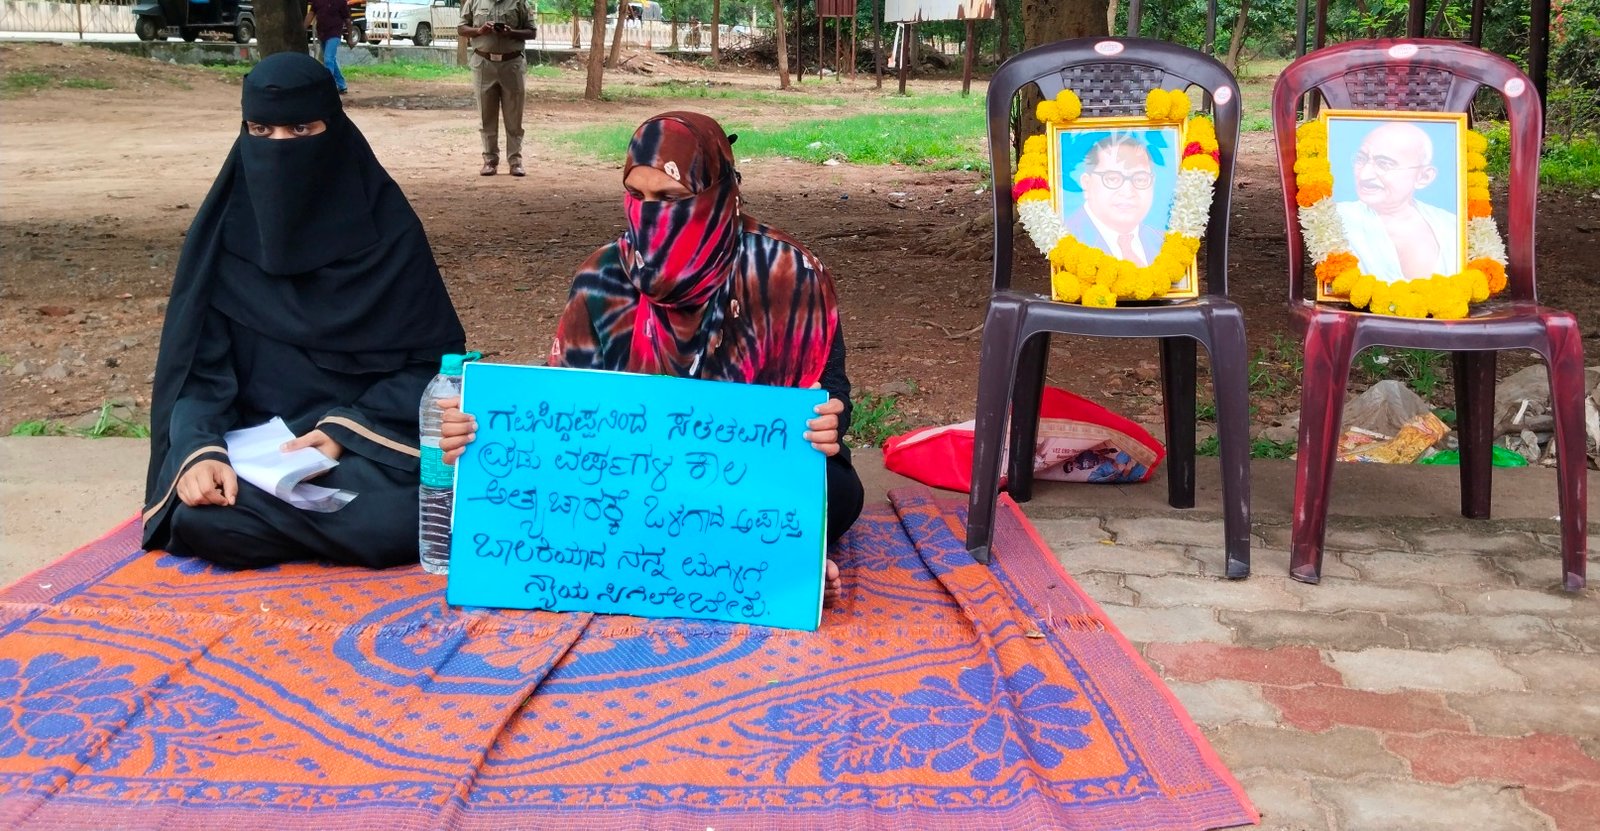 ಗವಿಸಿದ್ದಪ್ಪನಿಂದ ಸತತವಾಗಿ
ಎರಡು ವರ್ಷಗಳ ಕಾಲ
ಅತ್ಯಾಚಾರಕ್ಕೆ ಒಳಗಾದ ಅಪ್ರಾಪ್ತ
ಬಾಲಕಿಯಾದ ನನ್ನ ಮಗಳಿಗೆ
ನ್ಯಾಯ ಸಿಗಲೇಬೇಕು.